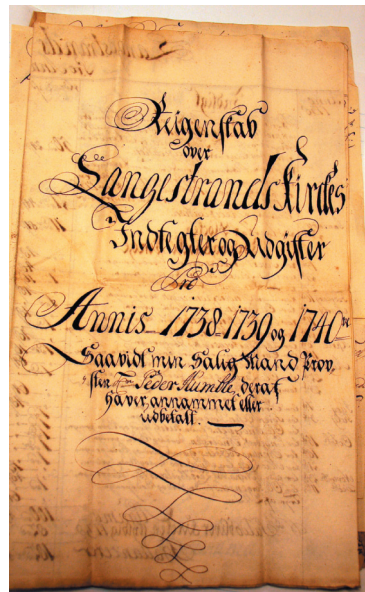 Reigenskab
over
Langestrands Kirches
Indtegter og Udgifter
Pro
Annis 1738-1739 og 1740
Saavidt min Salig Mand Prov
sten Peder Humble, deraf
haver annammet eller
udbetalt.